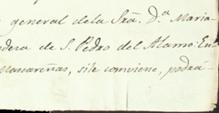 general de la Sra. D.ª Maria
dera de S. Pedro del Alamo. En
Manareñas, si le conviene, podrá